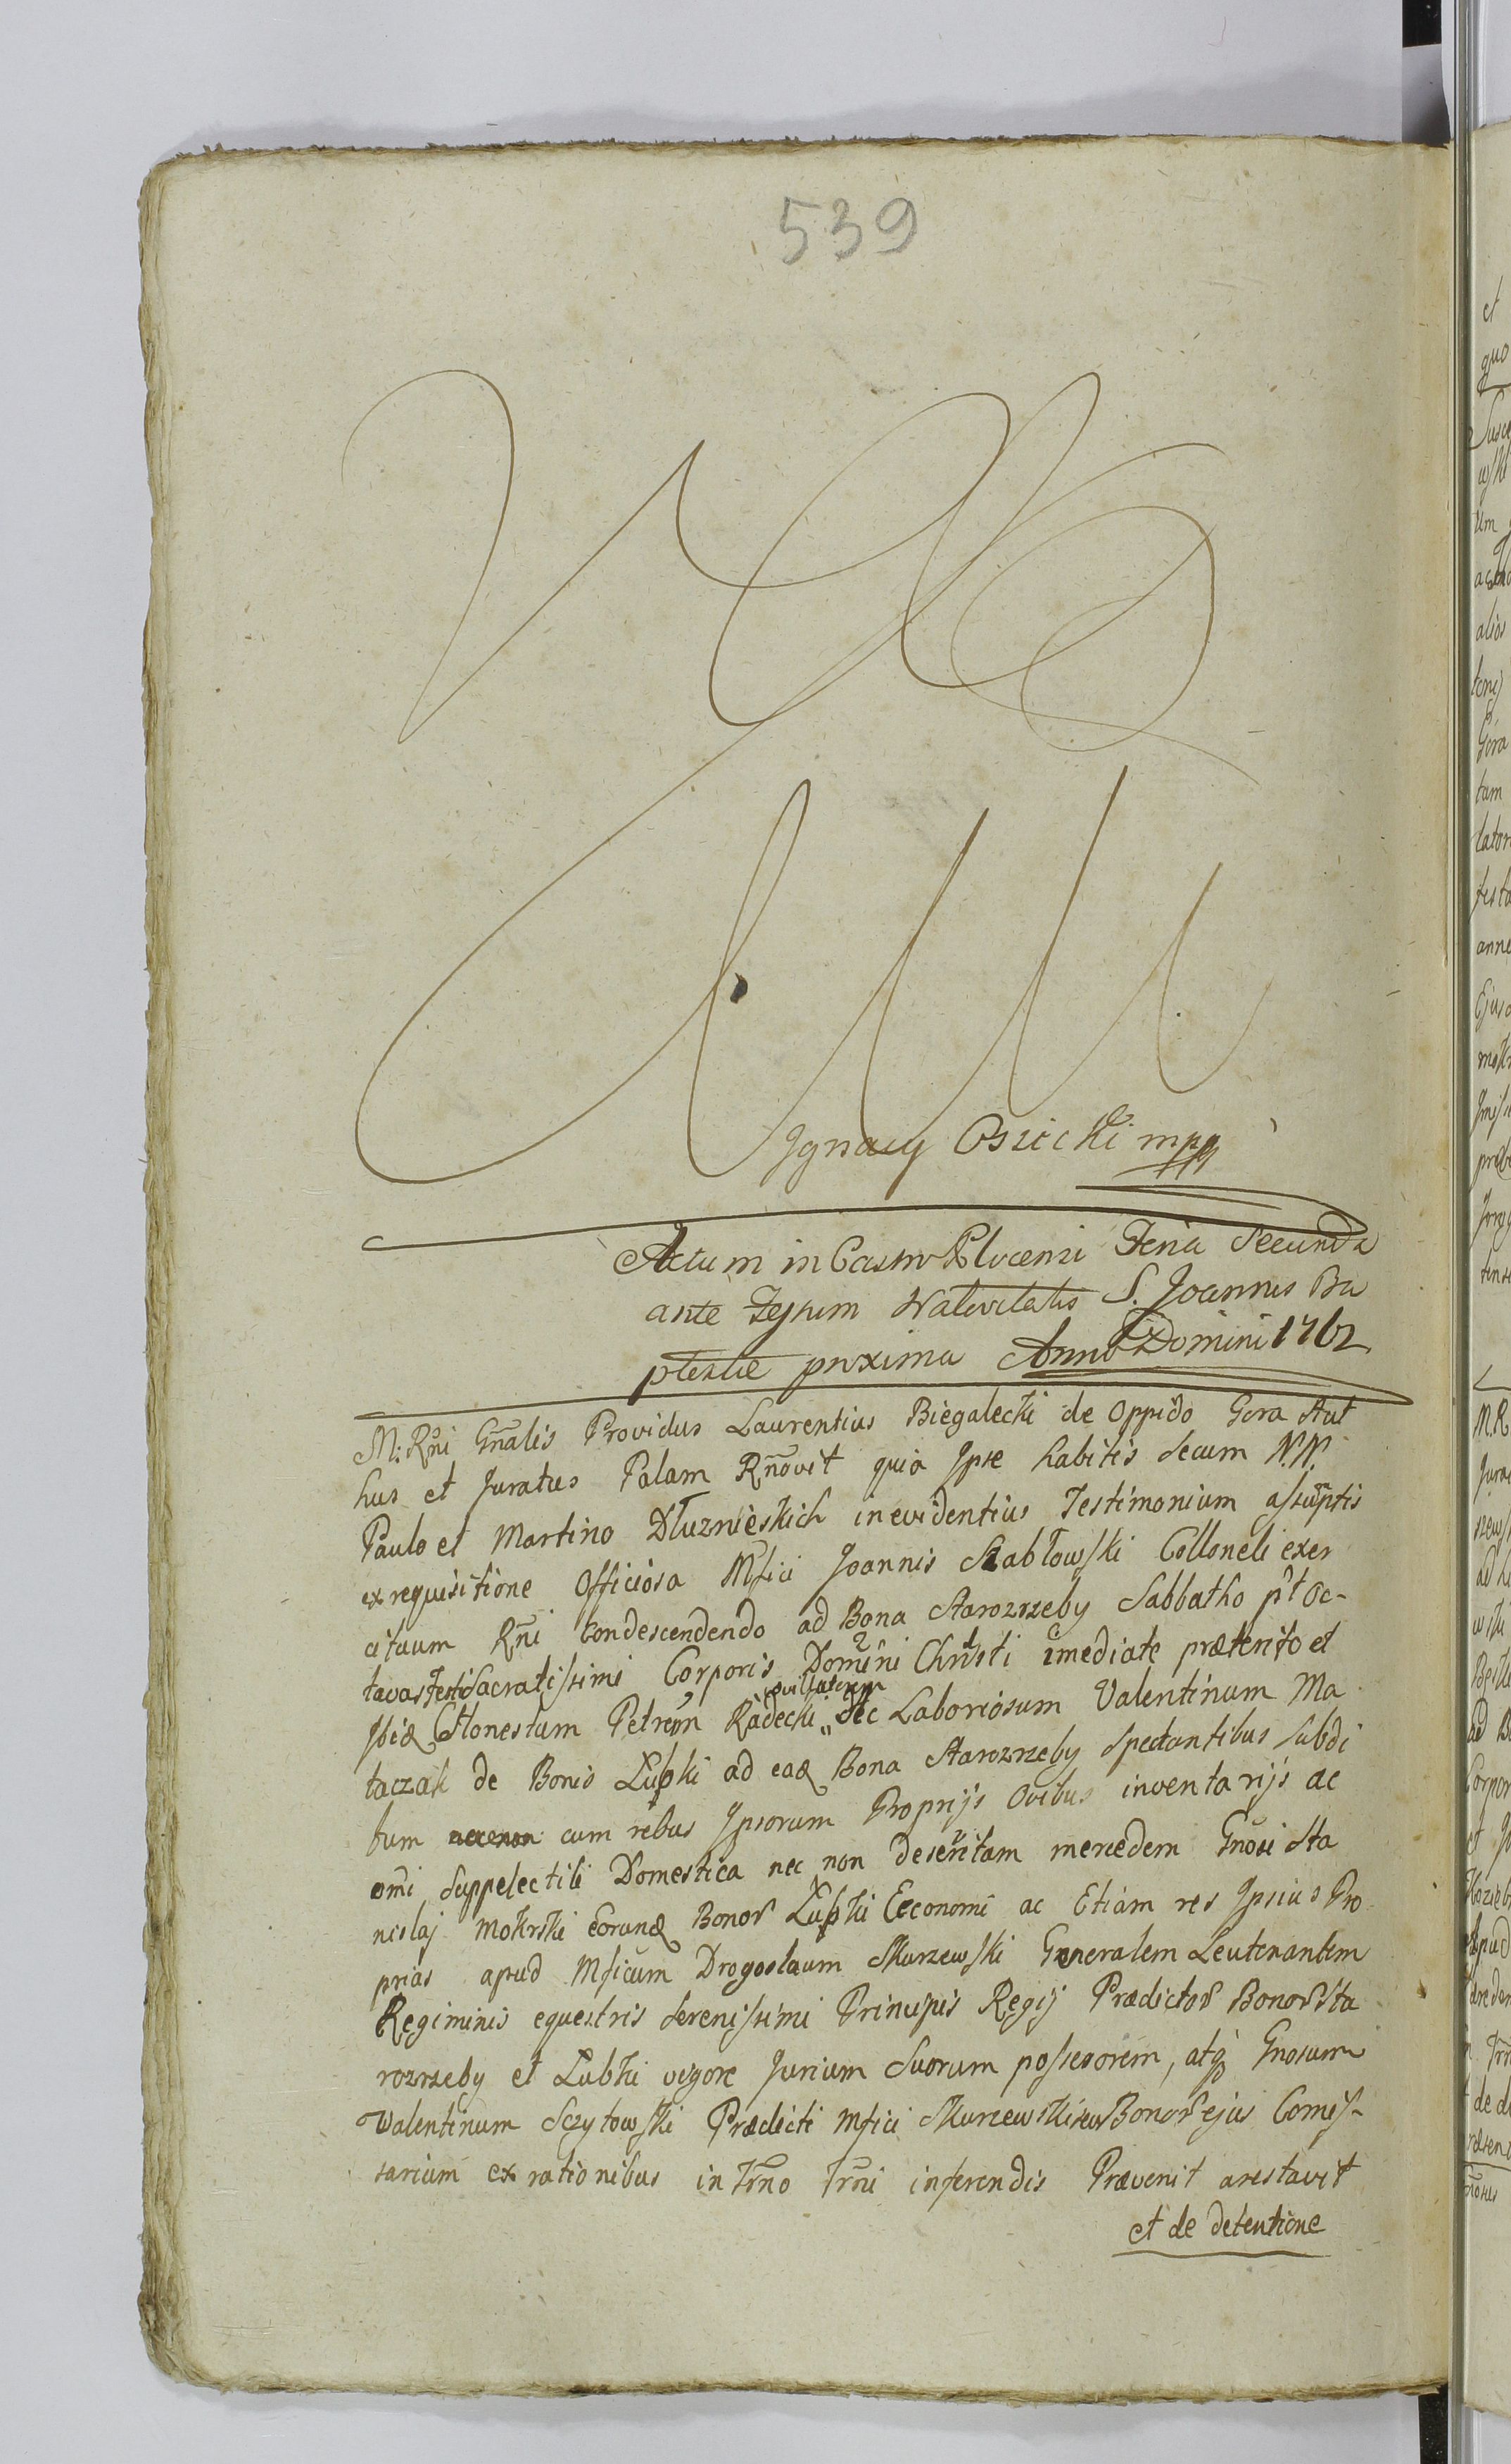 539
Ignacy Osiecki mpp
Actum in Castro Plocensi Feria Secunda
ante Festum Nativitatis S. Joannis Ba
ptestae proxima Anno Domini 1762
M: Rñi Gñalis Providus Laurentius Biegalecki de Oppido Gora Aut
hus et Juratus Palam Rñovit quia Ipse habitis secum N.N.
Paulo et Martino Dłuznieskich in evidentius Testimonium assuptis
ex requisitione Officiosa Mfici Joannis Szabłowski Colloneli exer
cituum Rñi condescendendo ad Bona Starozrzeby Sabbatho pt Oc-
tavas Festi Sacratissimi Corporis Domini Christi imediate præterito et
Ibidq Honestum Petrum Radecki ovillatorem Nec Laboriosum Valentinum Ma
taczak de Bonis Lubki ad eaq Bona Starozrzeby Spectantibus Subdi
tum cum rebus Ipsorum Proprijs Ovibus inventarijs ac
omi Suppelectili Domestica nec non deservitam mercedem Gnosi Sta
nislaj Mokrski eorunq Bonor Lubki Œconomi ac Etiam res Ipsius Pro
prias apud Mficum Drogosłaum Skurzewski Generalem Leutenantem
Regiminis equestris Serenissimi Principis Regij Prædictor Bonor Sta
rozrzeby et Lubki vigore Jurium Suorum possesorem, atq Gnosum
Valentinum Sczytowski Prædicti Mfici Skurzewski seu Bonor ejus Comis-
sarium ex rationibus in Trño Trñi inferendis Prævenit arestavit
et de detentione